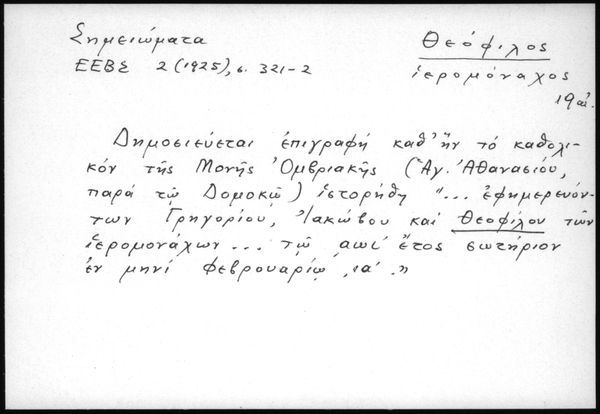 Σημειώματα
ΕΕΒΣ 2 (1925), σ. 321-2
Θεόφιλος
ἱερομόναχος
19 αἰ.
Δημοσιεύεται ἐπιγραφή καθ' ἥν τό καθολι-
κόν τῆς Μονῆς Ὀμβριακῆς (Ἁγ. Ἀθανασίου,
παρά τῷ Δομοκῷ) ἱστορήθη "... ἐφημερευόν-
των Γρηγορίου, Ἰακώβου καί Θεοφίλου τῶν
ἱερομονάχων... τῷ ͵αωϊ ἔτος σωτήριον
ἐν μηνί Φεβρουαρίῳ ια'."